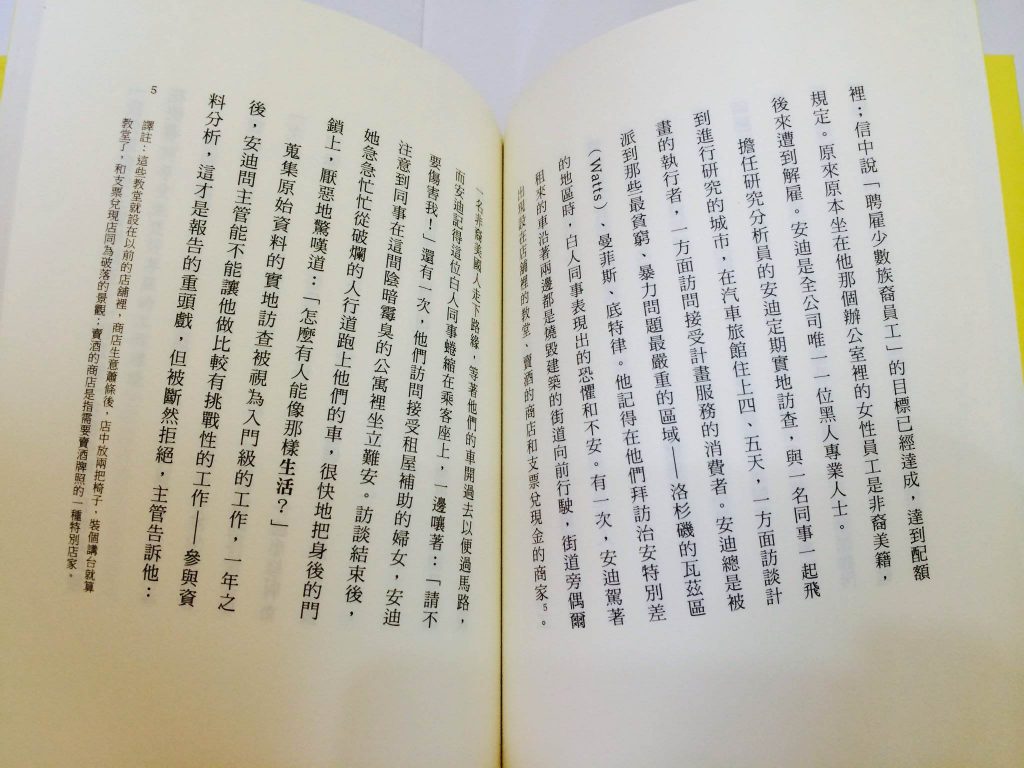 裡；信中說「聘雇少數族裔員工」的目標已經達成，達到配額
規定。原來原本坐在他那個辦公室裡的女性員工是非裔美籍，
後來遭到解雇。安迪是全公司唯一一位黑人專業人士。
擔任研究分析員的安迪定期實地訪查，與一名同事一起飛
到進行研究的城市，在汽車旅館住上四、五天，一方面訪談計
畫的執行者，一方面訪問接受計畫服務的消費者。安迪總是被
派到那些最貧窮、暴力問題最嚴重的區域——洛杉磯的瓦茲區
（Watts）、曼菲斯、底特律。他記得在他們拜訪治安特別差
的地區時，白人同事表現出的恐懼和不安。有一次，安迪駕著
租來的車沿著兩邊都是燒毀建築的街道向前行駛，街道旁偶爾
出現設在店舖裡的教堂、賣酒的商店和支票兌現金的商家5。
一名非裔美國人走下路緣，等著他們的車開過去以便過馬路，
而安迪記得這位白人同事蜷縮在乘客座上，一邊嚷著：「請不
要傷害我！」還有一次，他們訪問接受租屋補助的婦女，安迪
注意到同事在這間陰暗霉臭的公寓裡坐立難安。訪談結束後，
她急急忙忙從破爛的人行道跑上他們的車，很快地把身後的門
鎖上，厭惡地驚嘆道：「怎麼有人能像那樣生活？」
蒐集原始資料的實地訪查被視為入門級的工作，一年之
後，安迪問主管能不能讓他做比較有挑戰性的工作——參與資
料分析，這才是報告的重頭戲，但被斷然拒絕，主管告訴他：
5 譯註：這些教堂就設在以前的店舖裡，商店生意蕭條後，店中放兩把椅子，裝個講台就算
教堂了，和支票兌現店同為破落的景觀；賣酒的商店是指需要賣酒牌照的一種特別店家。